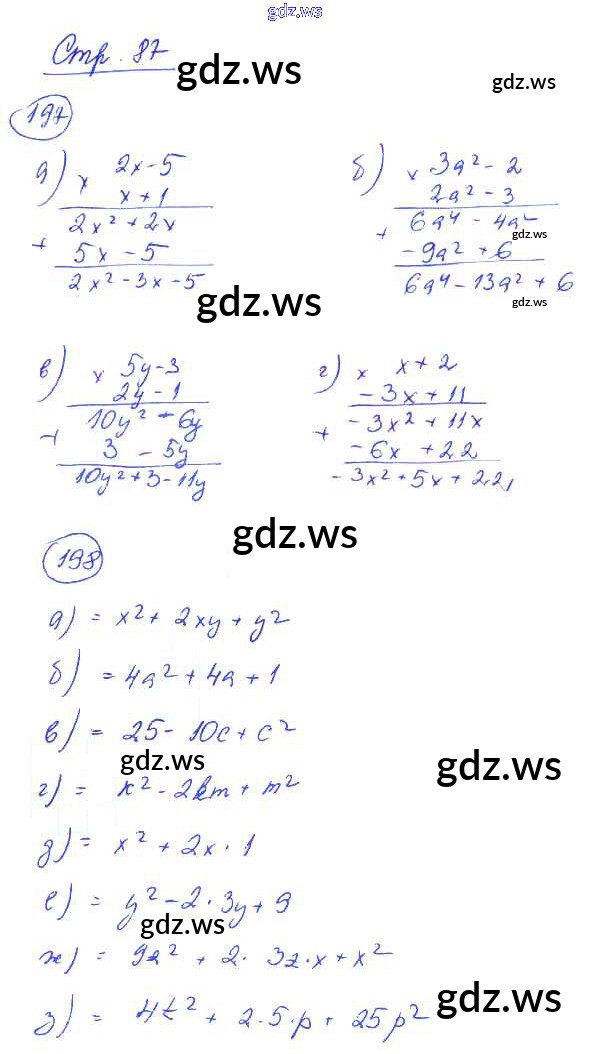 gdz.ws
Стр. 87
gdz.ws
gdz.ws
197
а) × 2x - 5
x + 1
2x² + 2x
+ 5x - 5
2x² - 3x - 5
б) × 3a² - 2
2a² - 3
+ 6a⁴ - 4a²
gdz.ws
- 9a² + 6
6a⁴ - 13a² + 6
gdz.ws
gdz.ws
в) × 5y - 3
2y - 1
10y² - 6y
+ 3 - 5y
10y² + 3 - 11y
г) × x + 2
- 3x + 11
- 3x² + 11x
+ - 6x + 22
- 3x² + 5x + 22
gdz.ws
198
а) = x² + 2xy + y²
б) = 4a² + 4a + 1
в) = 25 - 10c + c²
gdz.ws
gdz.ws
г) = k² - 2km + m²
д) = x² + 2x · 1
е) = y² - 2 · 3y + 9
gdz.ws
ж) = 9z² + 2 · 3z · x + x²
gdz.ws
з) = 4t² + 2 · 5 · p + 25p²